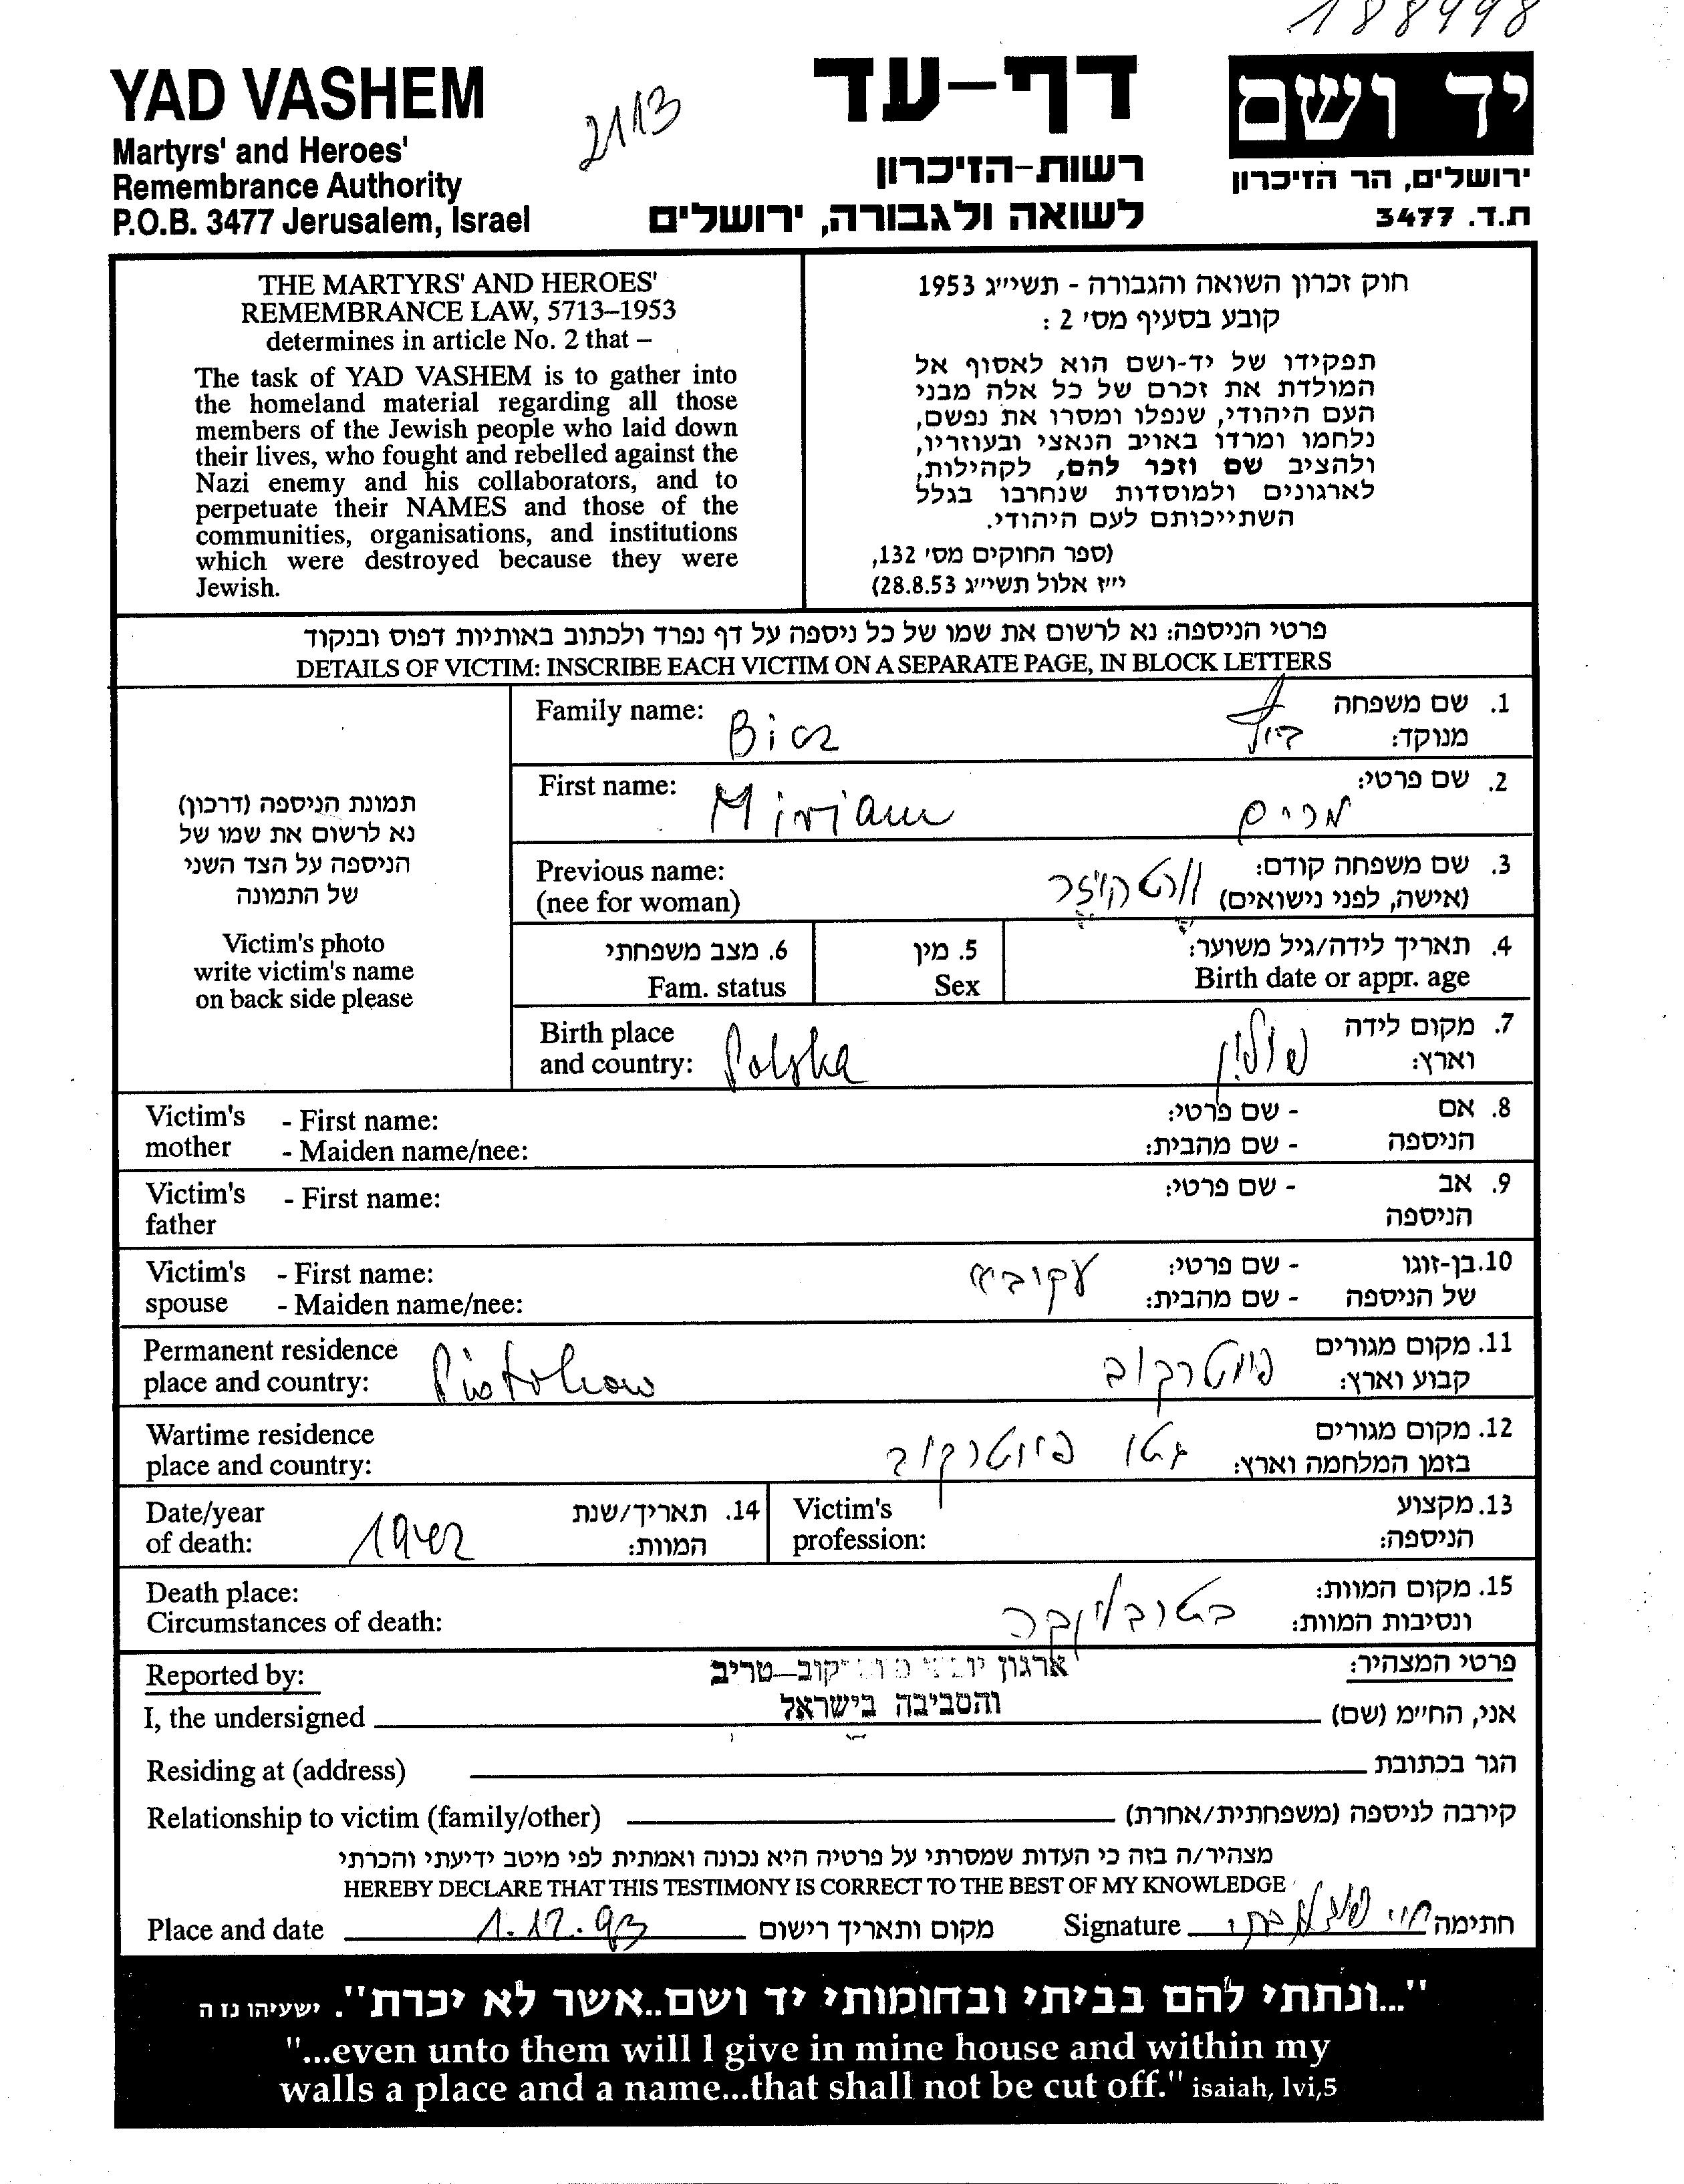 188998
YAD VASHEM
Martyrs' and Heroes'
Remembrance Authority
P.O.B. 3477 Jerusalem, Israel
2113
דף-עד
רשות-הזיכרון
לשואה ולגבורה, ירושלים
יד ושם
ירושלים, הר הזיכרון
ת.ד. 3477
THE MARTYRS' AND HEROES'
REMEMBRANCE LAW, 5713–1953
determines in article No. 2 that –
The task of YAD VASHEM is to gather into
the homeland material regarding all those
members of the Jewish people who laid down
their lives, who fought and rebelled against the
Nazi enemy and his collaborators, and to
perpetuate their NAMES and those of the
communities, organisations, and institutions
which were destroyed because they were
Jewish.
חוק זכרון השואה והגבורה - תשי״ג 1953
קובע בסעיף מס' 2 :
תפקידו של יד-ושם הוא לאסוף אל
המולדת את זכרם של כל אלה מבני
העם היהודי, שנפלו ומסרו את נפשם,
נלחמו ומרדו באויב הנאצי ובעוזריו,
ולהציב שם וזכר להם, לקהילות,
לארגונים ולמוסדות שנחרבו בגלל
השתייכותם לעם היהודי.
(ספר החוקים מס' 132,
י״ז אלול תשי״ג 28.8.53)
פרטי הניספה: נא לרשום את שמו של כל ניספה על דף נפרד ולכתוב באותיות דפוס ובנקוד
DETAILS OF VICTIM: INSCRIBE EACH VICTIM ON A SEPARATE PAGE, IN BLOCK LETTERS
תמונת הניספה (דרכון)
נא לרשום את שמו של
הניספה על הצד השני
של התמונה
Victim's photo
write victim's name
on back side please
Family name: Bicz
1. שם משפחה
מנוקד:
First name: Miriam
2. שם פרטי: מרים
Previous name:
(nee for woman)
3. שם משפחה קודם:
(אישה, לפני נישואים)
6. מצב משפחתי
Fam. status
5. מין
Sex
4. תאריך לידה/גיל משוער:
Birth date or appr. age
Birth place
and country: Polska
7. מקום לידה
וארץ: פולין
Victim's mother
- First name:
- Maiden name/nee:
8. אם הניספה
- שם פרטי:
- שם מהבית:
Victim's father
- First name:
9. אב הניספה
- שם פרטי:
Victim's spouse
- First name:
- Maiden name/nee:
10. בן-זוגו של הניספה
- שם פרטי: עקוביא
- שם מהבית:
Permanent residence
place and country: Piotrkow
11. מקום מגורים
קבוע וארץ: פיוטרקוב
Wartime residence
place and country:
12. מקום מגורים
בזמן המלחמה וארץ: גטו פיוטרקוב
Date/year
of death: 1942
14. תאריך/שנת
המוות:
Victim's
profession:
13. מקצוע
הניספה:
Death place:
Circumstances of death:
15. מקום המוות:
ונסיבות המוות: בטרבלינקה
Reported by:
פרטי המצהיר:
ארגון יוצאי פיוטרקוב–טריב
והסביבה בישראל
I, the undersigned
אני, החי״מ (שם)
Residing at (address)
הגר בכתובת
Relationship to victim (family/other)
קירבה לניספה (משפחתית/אחרת)
מצהיר/ה בזה כי העדות שמסרתי על פרטיה היא נכונה ואמתית לפי מיטב ידיעתי והכרתי
HEREBY DECLARE THAT THIS TESTIMONY IS CORRECT TO THE BEST OF MY KNOWLEDGE
Place and date 1.12.93 מקום ותאריך רישום
Signature חתימה
"...ונתתי להם בביתי ובחומותי יד ושם..אשר לא יכרת". ישעיהו נז ה
"...even unto them will I give in mine house and within my
walls a place and a name...that shall not be cut off." isaiah, lvi,5